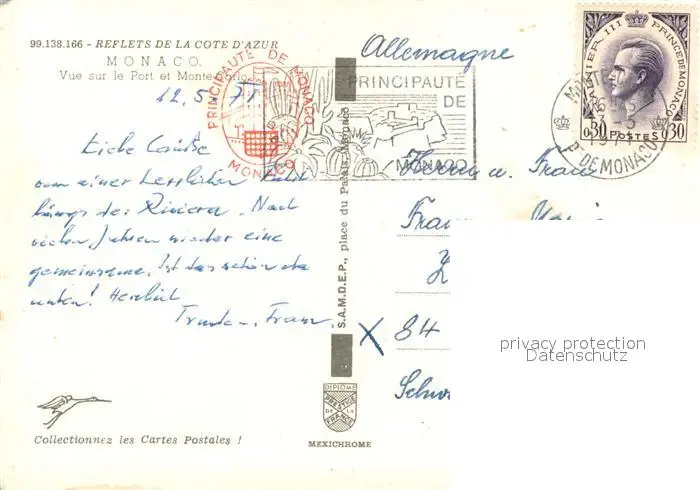 99.138.166 - REFLETS DE LA COTE D'AZUR
MONACO.
Vue sur le Port et Monte-Carlo
12.5.71
PRINCIPAUTÉ DE MONACO
MONACO
PRINCIPAUTÉ
DE
MONACO
Allemagne
RAINIER III PRINCE DE MONACO
0,30 POSTES 0,30
P. DE MONACO
Liebe Grüße
von einer herrlichen Fahrt
längs der Riviera. Nach
vielen Jahren wieder eine
gemeinsame. Ist das schön da
unten! Herzlich
Trude u. Franz
S.A.M.D.E.P., place du Palais, Monaco
Herrn u. Frau
Fran
X 84
Schw
privacy protection
Datenschutz
DIPLOME
PRESTIGE
DE LA
FRANCE
MEXICHROME
Collectionnez les Cartes Postales !